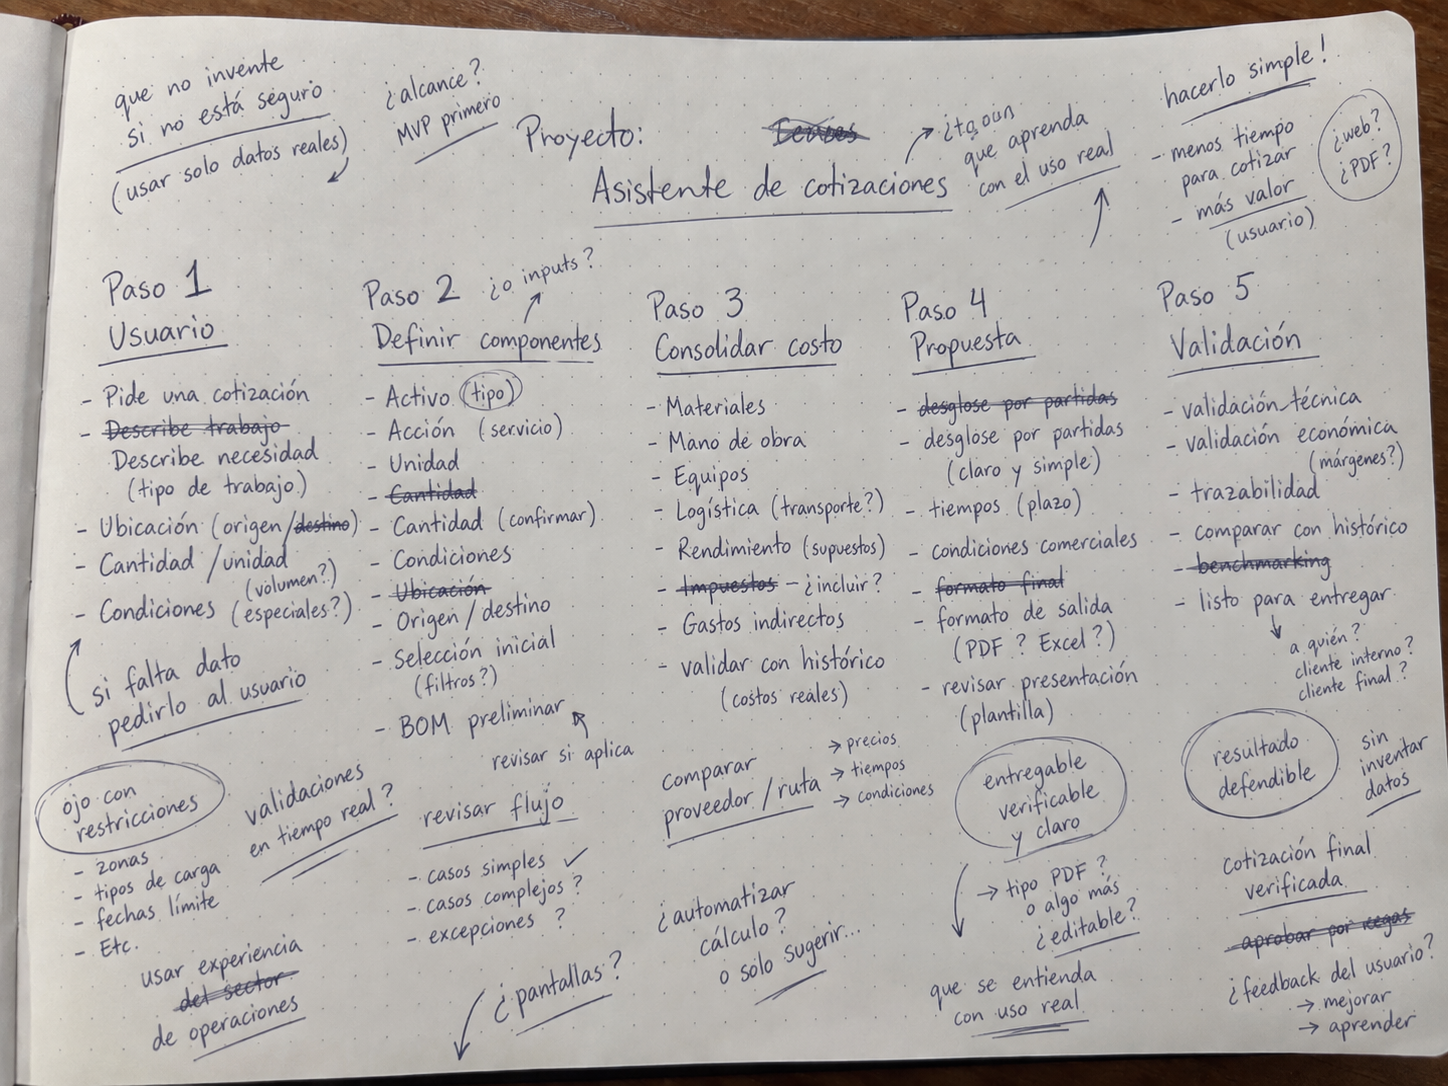 que no invente
si no está seguro
(usar solo datos reales)
¿alcance?
MVP primero
Proyecto:
Asistente de cotizaciones
que aprenda
con el uso real
hacerlo simple!
- menos tiempo
para cotizar
- más valor
(usuario)
¿web?
¿PDF?
Paso 1
Usuario
- Pide una cotización
- Describe trabajo
Describe necesidad
(tipo de trabajo)
- Ubicación (origen/destino)
- Cantidad/unidad
(volumen?)
- Condiciones (especiales?)
si falta dato
pedirlo al usuario
ojo con
restricciones
- zonas
- tipos de carga
- fechas límite
- Etc.
validaciones
en tiempo real?
usar experiencia
del sector
de operaciones
Paso 2 ¿o inputs?
Definir componentes
- Activo (tipo)
- Acción (servicio)
- Unidad
- Cantidad
- Cantidad (confirmar)
- Condiciones
- Ubicación
- Origen/destino
- Selección inicial
(filtros?)
- BOM preliminar
revisar si aplica
revisar flujo
- casos simples ✓
- casos complejos?
- excepciones ?
¿pantallas?
Paso 3
Consolidar costo
- Materiales
- Mano de obra
- Equipos
- Logística (transporte?)
- Rendimiento (supuestos)
- Impuestos - ¿incluir?
- Gastos indirectos
- validar con histórico
(costos reales)
comparar
proveedor/ruta
→ precios
→ tiempos
→ condiciones
¿automatizar
cálculo?
o solo sugerir...
Paso 4
Propuesta
- desglose por partidas
- desglose por partidas
(claro y simple)
- tiempos (plazo)
- condiciones comerciales
- formato final
- formato de salida
(PDF? Excel?)
- revisar presentación
(plantilla)
entregable
verificable
y claro
→ tipo PDF?
o algo más
¿editable?
que se entienda
con uso real
Paso 5
Validación
- validación técnica
- validación económica
(márgenes?)
- trazabilidad
- comparar con histórico
- benchmarking
- listo para entregar
a quién?
cliente interno?
cliente final?
resultado
defendible
sin
inventar
datos
cotización final
verificada
- aprobar por
¿feedback del usuario?
→ mejorar
→ aprender